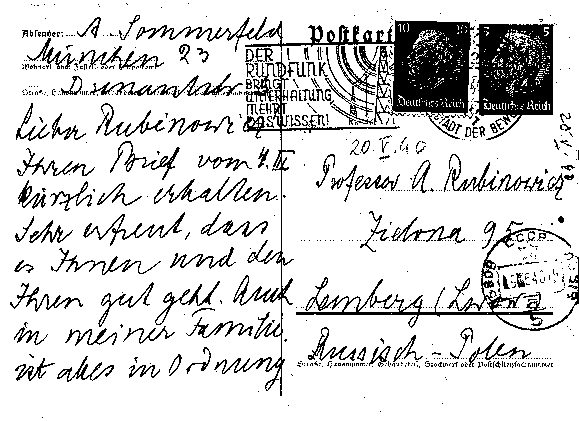 Absender: A Sommerfeld
München 23
Lieber Rubinowicz
Ihren Brief vom 4. IV
kürzlich erhalten.
Sehr erfreut, dass
es Ihnen und den
Ihren gut geht. Auch
in meiner Familie
ist alles in Ordnung
Postkarte
DER
RUNDFUNK
BRINGT
UNTERHALTUNG
MEHRT
DAS WISSEN!
10
5 5
Deutsches Reich
Deutsches Reich
STADT DER BEW
20. V. 40
Professor A. Rubinowicz
Zielona
Lemberg (Lwow)
Russisch-Polen